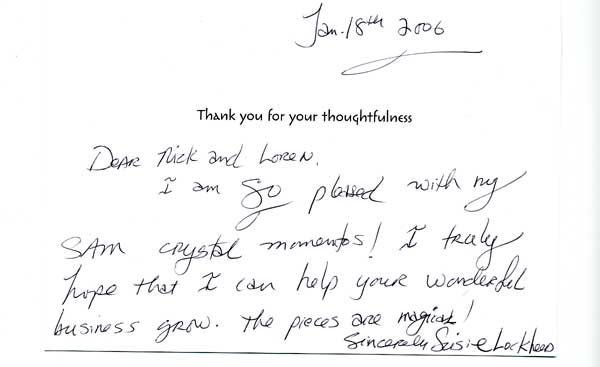 Jan. 18th 2006
Thank you for your thoughtfulness
Dear Nick and Loren,
I am SO plessed with my
SAM crystal momentos! I truly
hope that I can help your wonderful
business grow. The pieces are magical!
Sincerely Susie Lockheed